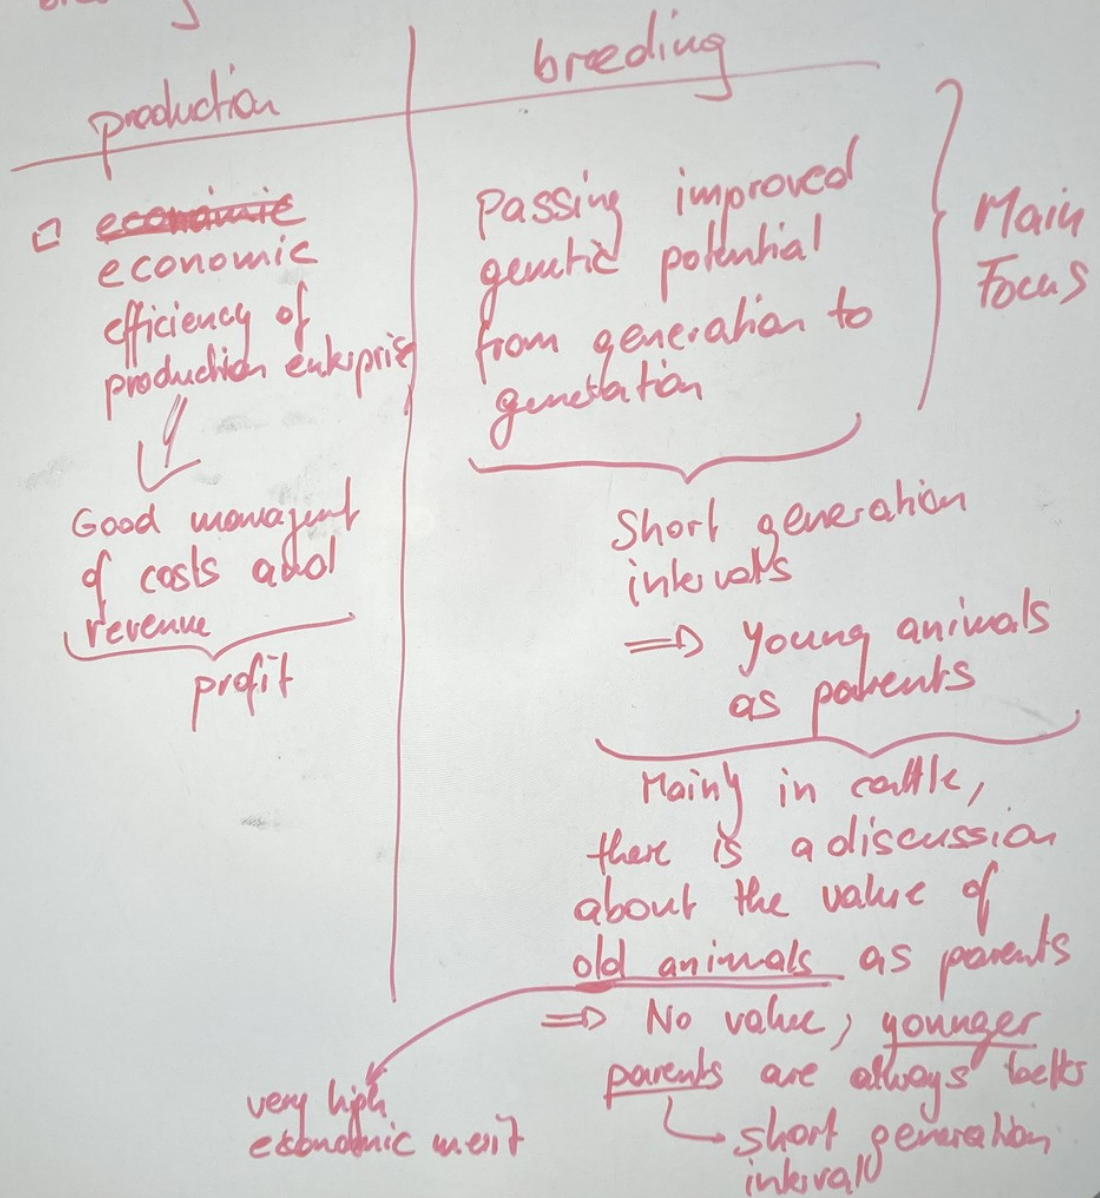 breeding
production
economic
economic
efficiency of
production enterpris
Good managent
of costs and
revenue
profit
Passing improved
genetic potential
from generation to
generation
Main
Focus
Short generation
intervals
⇒ young animals
as parents
Mainly in cattle,
there is a discussion
about the value of
old animals as parents
⇒ No value, younger
parents are always better
short generation
interval
very high
economic merit